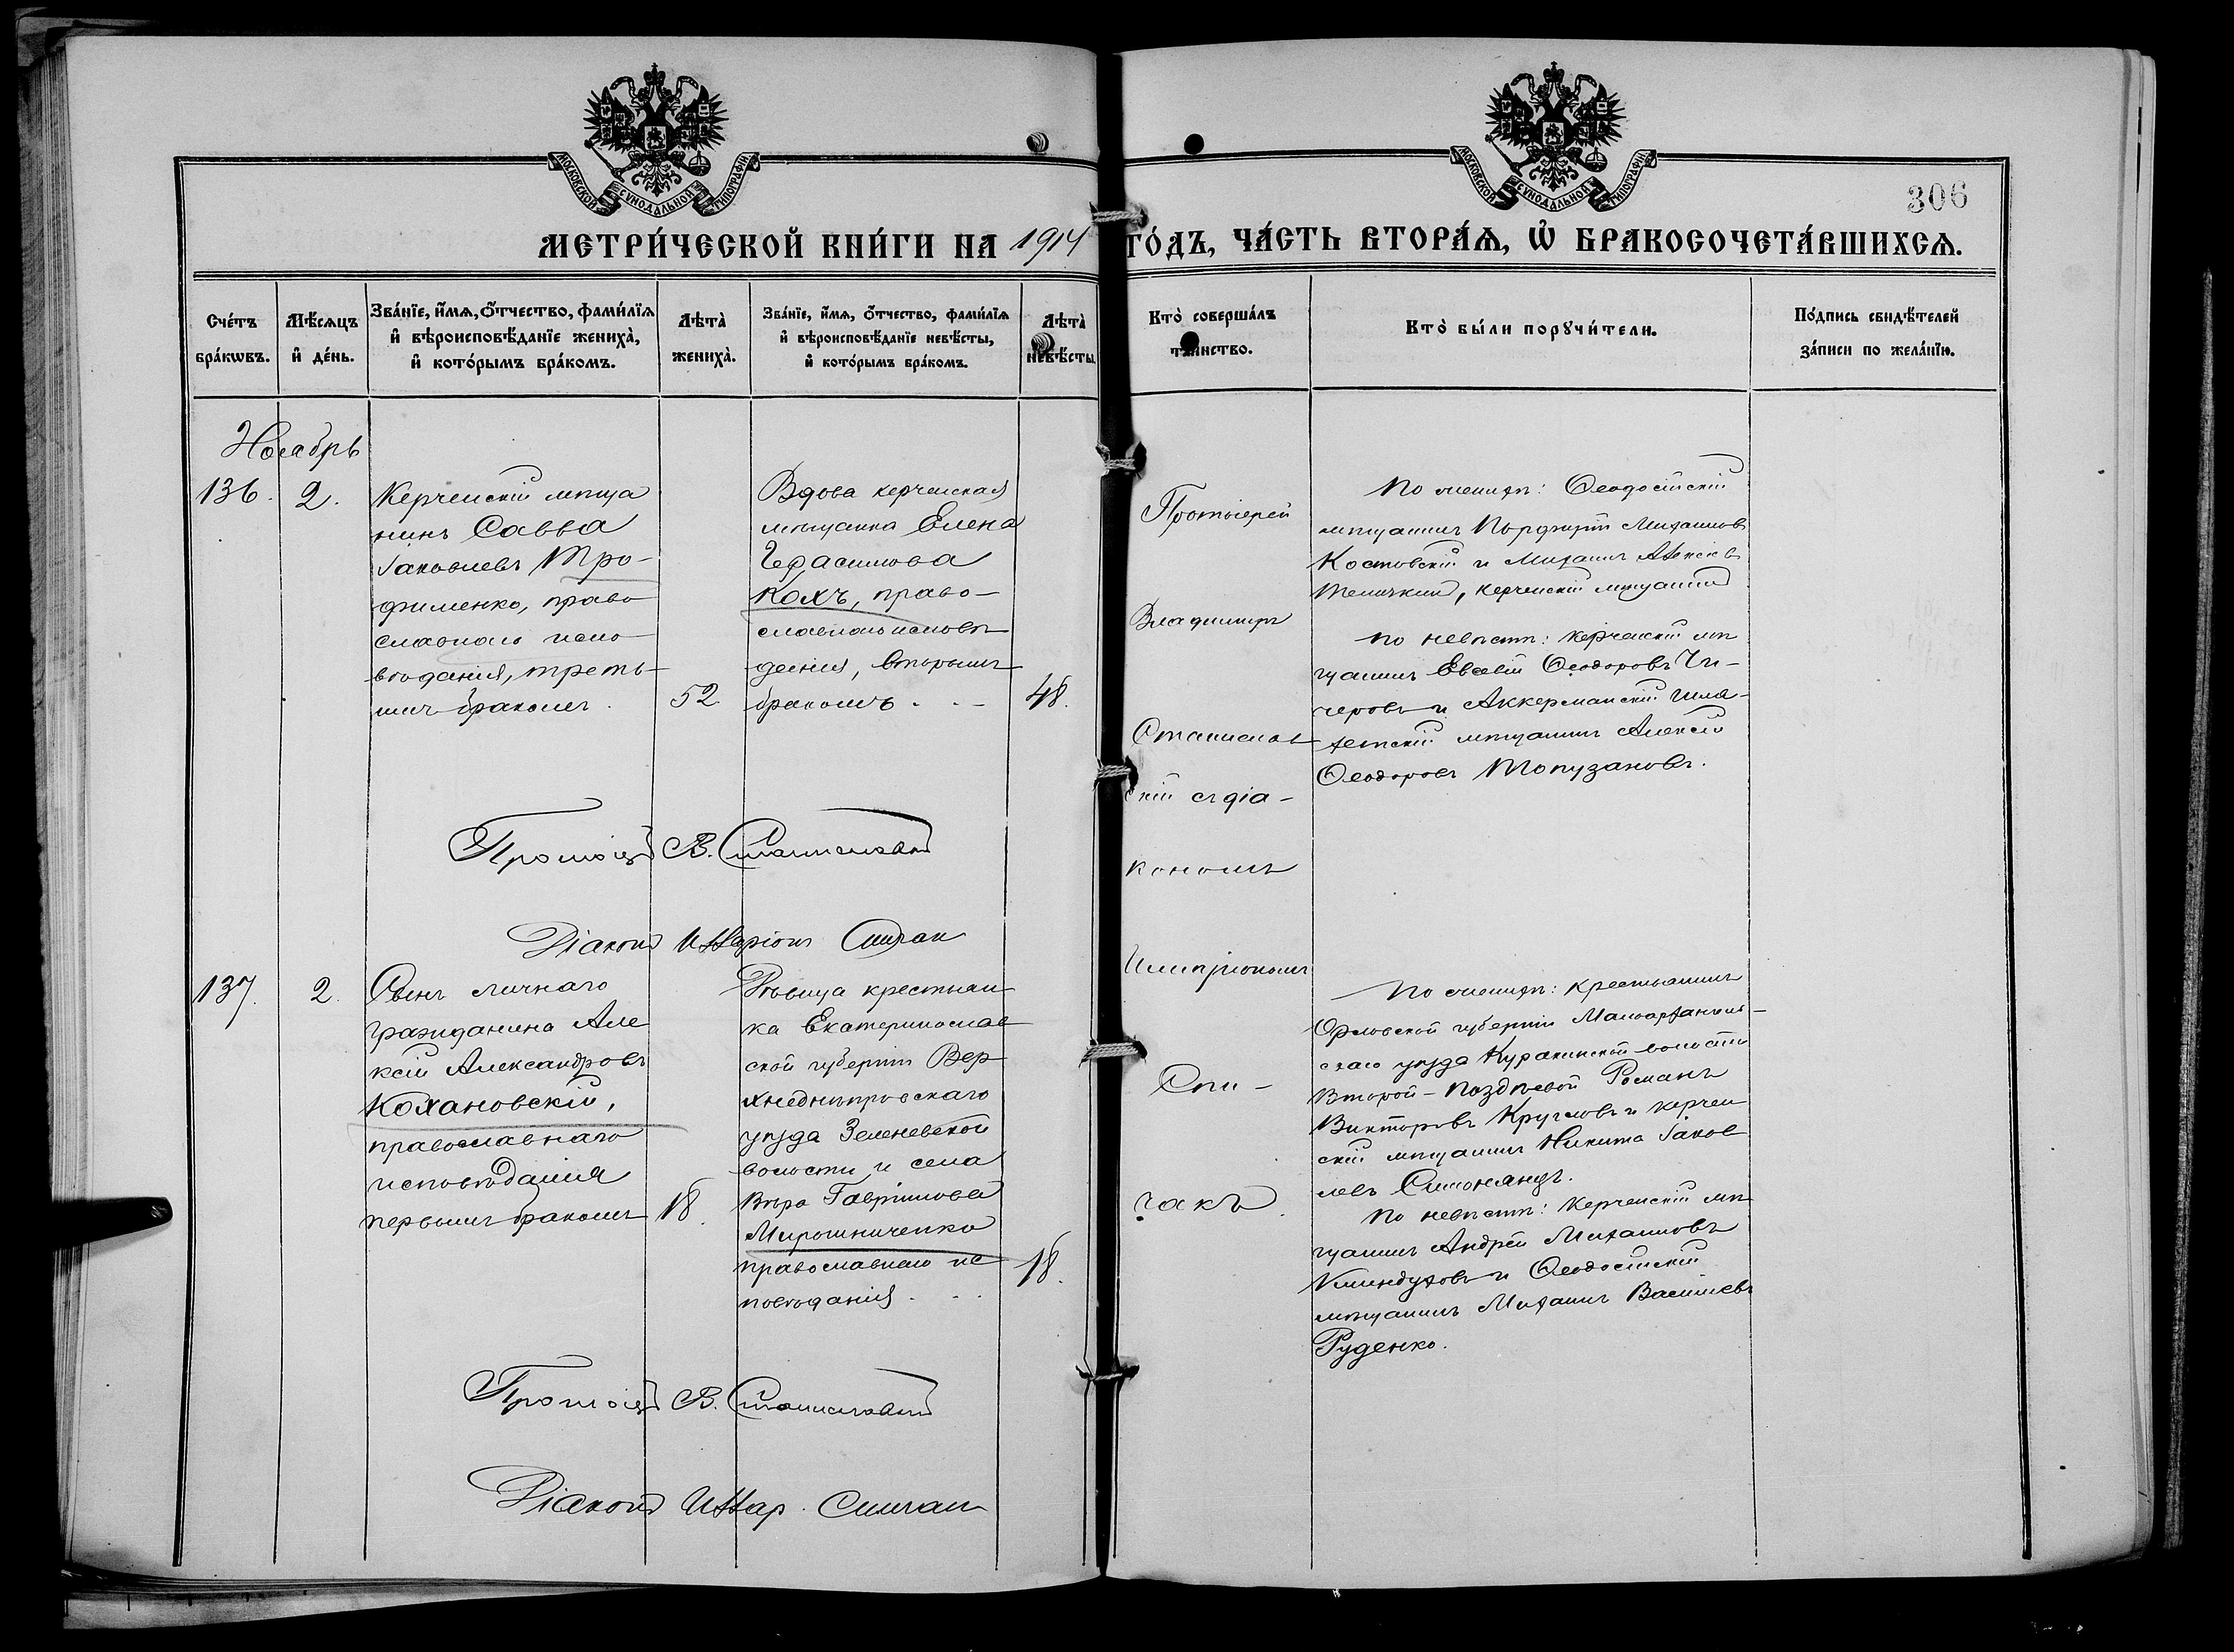 МОСКОВСКОЙ СѴНОДАЛЬНОЙ ТИПОГРАФІИ
МОСКОВСКОЙ СѴНОДАЛЬНОЙ ТИПОГРАФІИ
306
МЕТРИ́ЧЕСКОЙ КНИ́ГИ НА 1914 ГО́ДЪ, ЧА́СТЬ ВТОРА́Ѧ, Ѡ҆ БРАКОСОЧЕТА́ВШИХСѦ.
Сче́тъ
бра́кѡвъ.
Мѣ́сѧцъ
и҆ де́нь.
Зва́нїе, и҆́мѧ, ѻ҆́тчество, фами́лїѧ
и҆ вѣроисповѣ́данїе жениха̀,
и҆ кото́рымъ бра́комъ.
Лѣта̀
жениха̀.
Зва́нїе, и҆́мѧ, ѻ҆́тчество, фами́лїѧ
и҆ вѣроисповѣ́данїе невѣ́сты,
и҆ кото́рымъ бра́комъ.
Лѣта̀
невѣ́сты.
Кто̀ соверша́лъ
та́инство.
Кто̀ бы́ли порꙋчи́тели.
По́дпись свидѣ́телей
за́писи по жела́нїю.
Ноябрь
136.
2.
Керченскій мѣща
нинъ Савва
Іаковлевъ Тро-
фименко, право
славнаго испо
вѣданія, треть-
имъ бракомъ.
52
Вдова керченская
мѣщанка Елена
Герасимова
Кохъ, право-
славнаго исповѣ
данія, вторымъ
бракомъ . . -
48.
Протоіерей
Владиміръ
Станислав
скій съ діа-
кономъ
Иларіономъ
Спи-
чакъ.
По женихѣ: Ѳеодосійскій
мѣщанинъ Порфирій Михаиловъ
Костовскій и Михаилъ Алексѣевъ
керченскій мѣщанинъ
по невѣстѣ: керченскій мѣ
щанинъ Евсевій Ѳеодоровъ Чи-
черовъ и Аккерманскій
мѣщанинъ Алексѣй
Ѳеодоровъ Топузановъ.
Протоіер В. Станиславскій
Діаконъ Илларіонъ Спичак
137.
2.
Сынъ личнаго
гражданина Але
ксѣй Александровъ
Кохановскій,
православнаго
исповѣданія
первымъ бракомъ
18.
Дѣвица крестьян
ка Екатеринослав
ской губерніи Вер
хнеднѣпровскаго
уѣзда Зеленевской
волости и села
Вѣра Гавріилова
Мирошниченко
православнаго ис
повѣданія . . .
18.
По женихѣ: крестьянинъ
Орловской губерніи Малоархангель-
скаго уѣзда Куракинской волости
Второй-Поздѣевой Романъ
Викторовъ Кругловъ и керчен
скій мѣщанинъ Никита Іаков
левъ Симонянцъ.
По невѣстѣ: Керченскій мѣ
щанинъ Андрей Михаиловъ
Климдуховъ и Ѳеодосійскій
мѣщанинъ Михаилъ Васильевъ
Руденко.
Протоіер В. Станиславскій
Діаконъ Иллар. Спичак